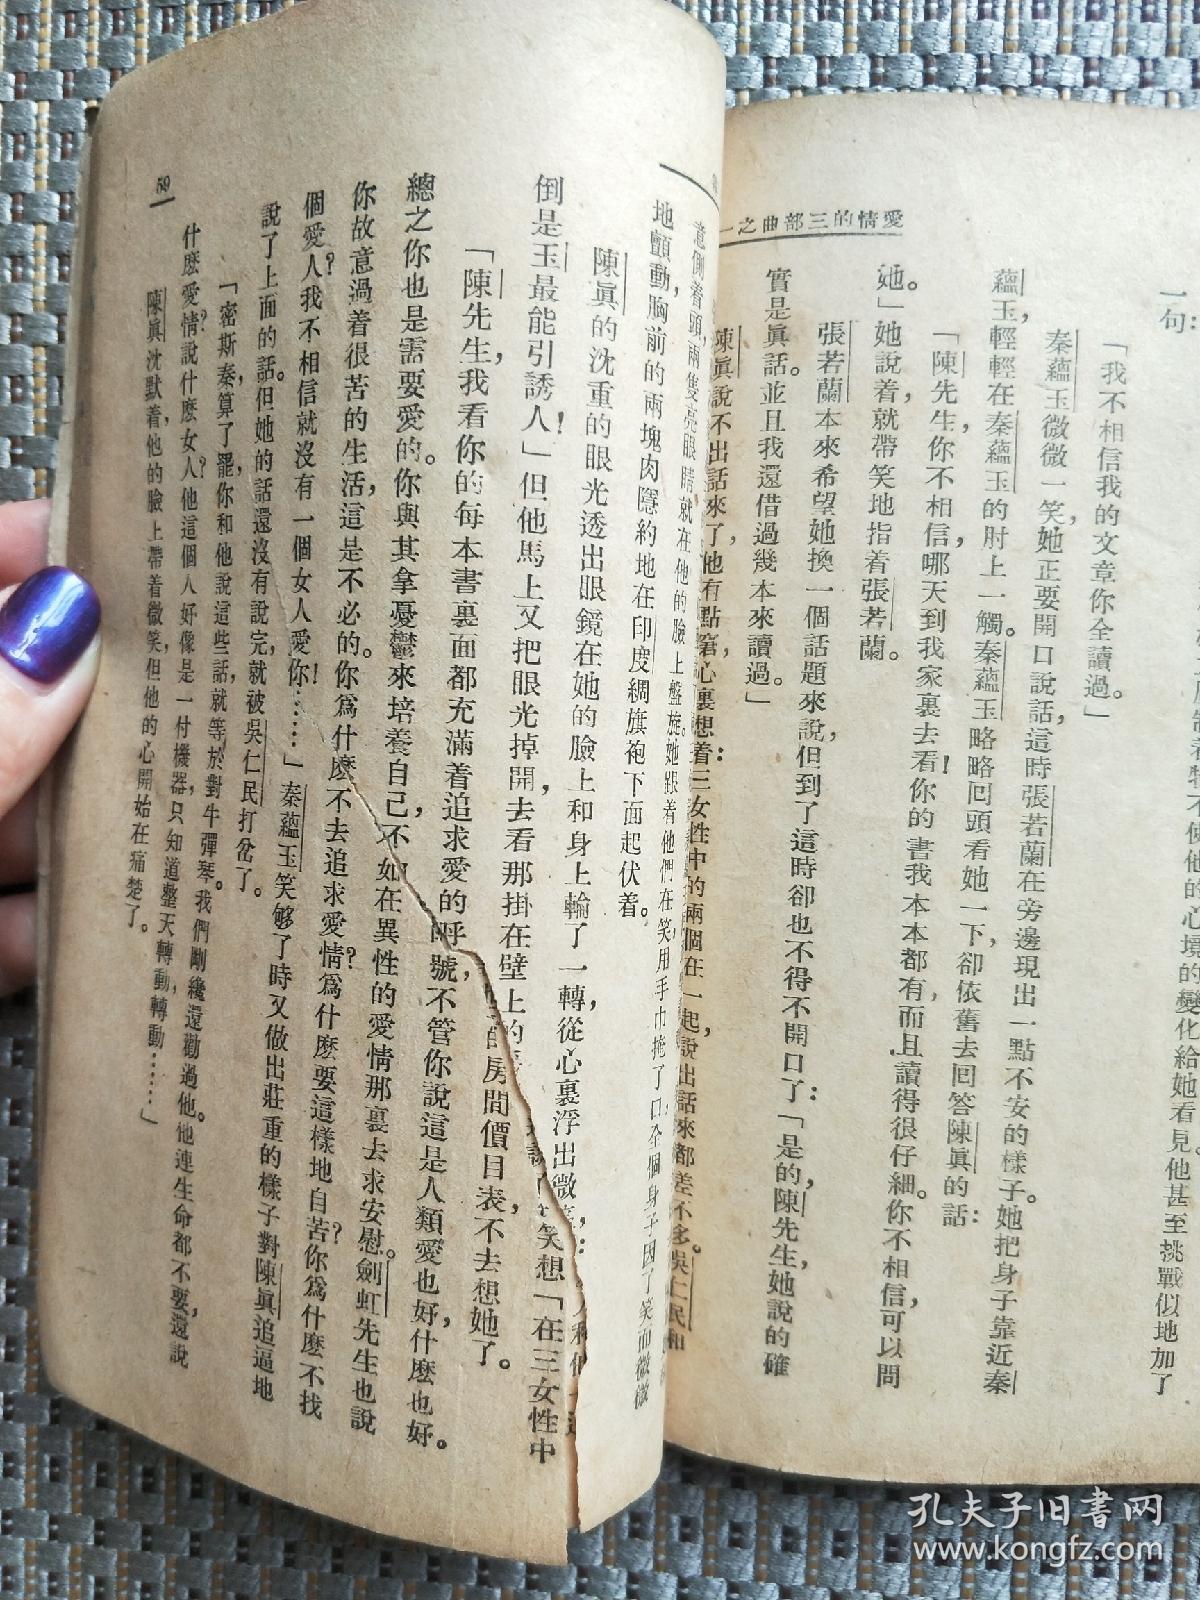 愛情的三部曲之一
一句：
「我不相信我的文章你全讀過。」
秦蘊玉微微一笑，她正要開口說話，這時張若蘭在旁邊現出一點不安的樣子。她把身子靠近秦
蘊玉，輕輕在秦蘊玉的肘上一觸。秦蘊玉略略回頭看她一下，卻依舊去回答陳眞的話：
「陳先生，你不相信，哪天到我家裏去看！你的書我本本都有，而且讀得很仔細。你不相信，可以問
她。」她說着，就帶笑地指着張若蘭。
張若蘭本來希望她換一個話題來說，但到了這時卻也不得不開口了：「是的，陳先生，她說的確
實是眞話。並且我還借過幾本來讀過。」
陳眞說不出話來了，他有點窘，心裏想着：三女性中的兩個在一起，說出話來都差不多。吳仁民和
意側着頭，兩隻亮眼睛就在他的臉上盤旋。她跟着他們在笑，用手巾掩了口，全個身子因了笑而微微
地顫動，胸前的兩塊肉隱約地在印度綢旗袍下面起伏着。
陳眞的沈重的眼光透出眼鏡在她的臉上和身上輪了一轉，從心裏浮出微笑，
笑想「在三女性中
倒是玉最能引誘人！」但他馬上又把眼光掉開，去看那掛在壁上的
的房間價目表，不去想她了。
「陳先生，我看你的每本書裏面都充滿着追求愛的呼號，不管你說這是人類愛也好，什麽也好。
總之你也是需要愛的。你與其拿憂鬱來培養自己，不如在異性的愛情那裏去求安慰。劍虹先生也說
你故意過着很苦的生活，這是不必的。你爲什麽不去追求愛情？爲什麽要這樣地自苦？你爲什麽不找
個愛人？我不相信就沒有一個女人愛你！……」秦蘊玉笑够了時又做出莊重的樣子對陳眞追逼地
說了上面的話。但她的話還沒有說完，就被吳仁民打岔了。
「密斯秦，算了罷，你和他說這些話，就等於對牛彈琴。我們剛纔還勸過他。他連生命都不要，還說
什麽愛情？說什麽女人？他這個人好像是一付機器，只知道整天轉動，轉動……」
陳眞沈默着，他的臉上帶着微笑，但他的心開始在痛楚了。
59
孔夫子旧书网
www.kongfz.com